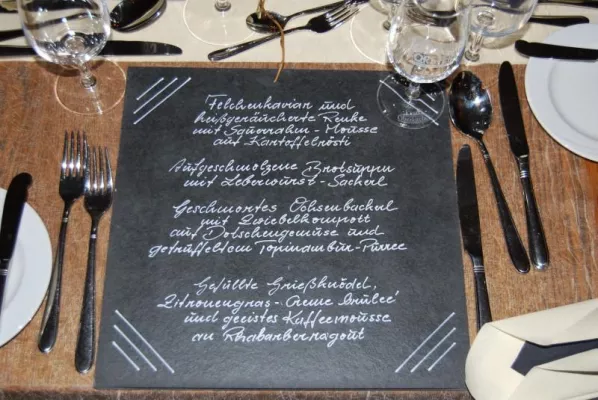 Felchenkaviar und
heißgeräucherte Renke
mit Sauerrahm - Mousse
auf Kartoffelrösti
Aufgeschmolzene Brotsuppn
mit Leberwurst - Sacherl
Geschmortes Ochsenbackerl
mit Zwiebelkompott
auf Dotschengemüse und
getrüffeltem Topinambur-Pürree
Gefüllte Grießknödel,
Zitronengras - Creme Brulee'
und geeistes Kaffeemousse
an Rhabarberragout